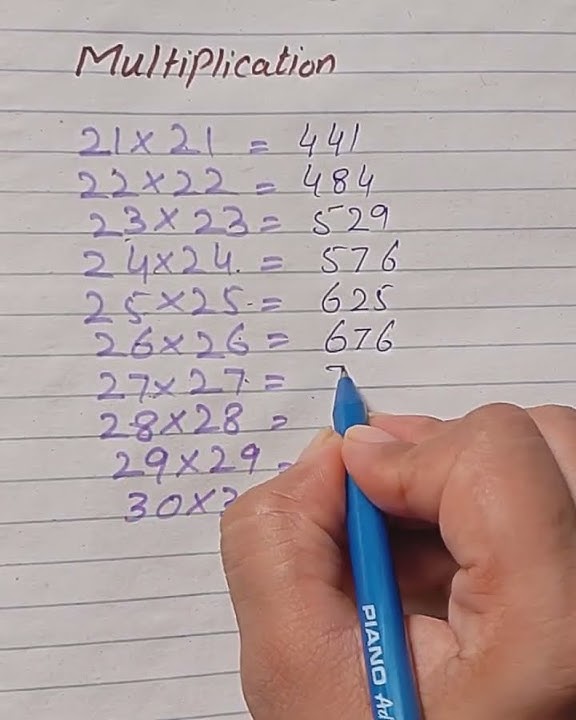 Multiplication
21 × 21 = 441
22 × 22 = 484
23 × 23 = 529
24 × 24 = 576
25 × 25 = 625
26 × 26 = 676
27 × 27 = 7
28 × 28 =
29 × 29 =
30 ×
PIANO